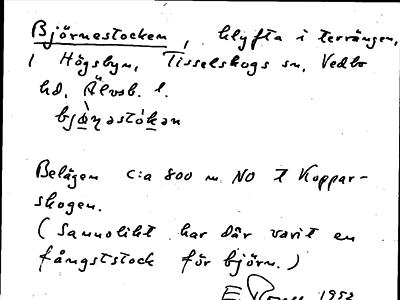 Björnestocken, klyfta i terrängen,
i Högsbyn, Tisselskogs sn, Vedbo
hd, Älvsb. l.
bjø̀ṇəstókən
Belägen c:a 800 m NO t Koppar-
skogen.
(Sannolikt har där varit en
fångststock för björn.)
E. 1952